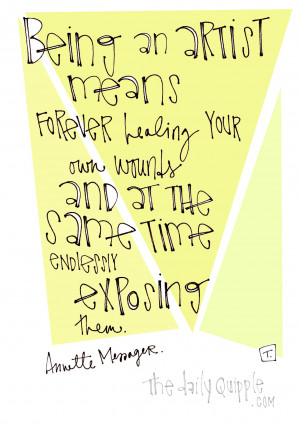 Being an ARTIST
means
FOREVER healing YOUR
own wounds
AND AT THE
SAME TIME
ENDLESSLY
exposing
them.
Annette Messager.
T.
the daily Quipple
.COM